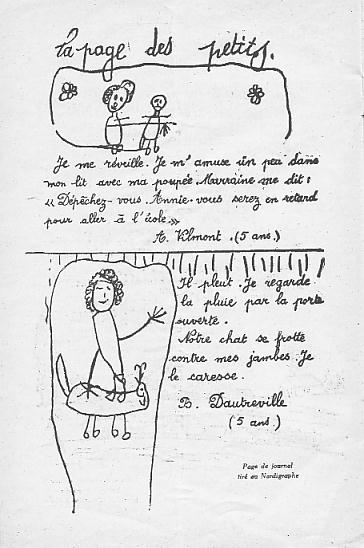 La page des petits.
Je me réveille. Je m'amuse un peu dans
mon lit avec ma poupée. Marraine me dit :
« Dépêchez-vous Annie. vous serez en retard
pour aller à l'école. »
A. Vilmont. (5 ans.)
Il pleut. Je regarde
la pluie par la porte
ouverte.
Notre chat se frotte
contre mes jambes. Je
le caresse.
B. Dautreville
(5 ans.)
Page de journal
tiré au Nardigraphe